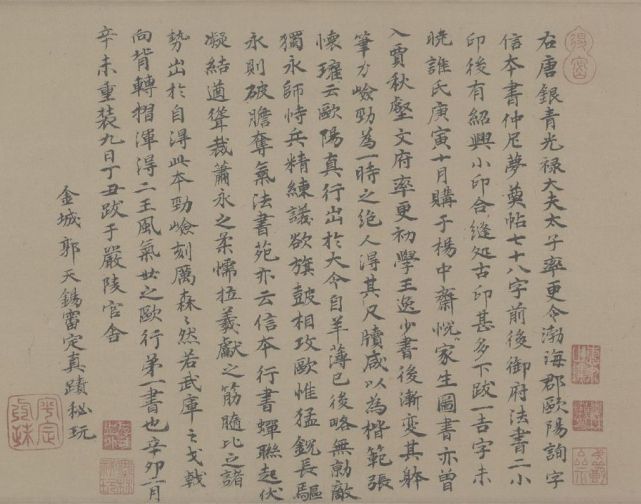 右唐銀青光禄大夫太子率更令渤海郡歐陽詢字
信本書仲尼夢奠帖七十八字前後御府法書二小
印後有紹興小印合縫処古印甚多下跋一吉字未
曉誰氏庚寅十月購于楊中齋恱家生圖書亦曽
入賈秋壑文府率更初學王逸少書後漸變其躰
筆力嶮勁為一時之絶人得其尺牘咸以為楷範張
懷瓘云歐陽真行出於大令自羊薄已後略無勍敵
獨永師恃兵精練議欲旗鼓相攻歐惟猛鋭長驅
永則破膽奪氣法書苑亦云信本行書蟬聯起伏
凝結遒聳裁蕭永之柔懦拉羲獻之筋髓比之諸
勢出於自得此本勁嶮刻厲森〻然若武庫之戈戟
向背轉摺渾得二王風氣世之歐行第一書也辛卯二月
辛未重装九日丁丑跋于嚴陵官舎
金城郭天錫審定真蹟秘玩